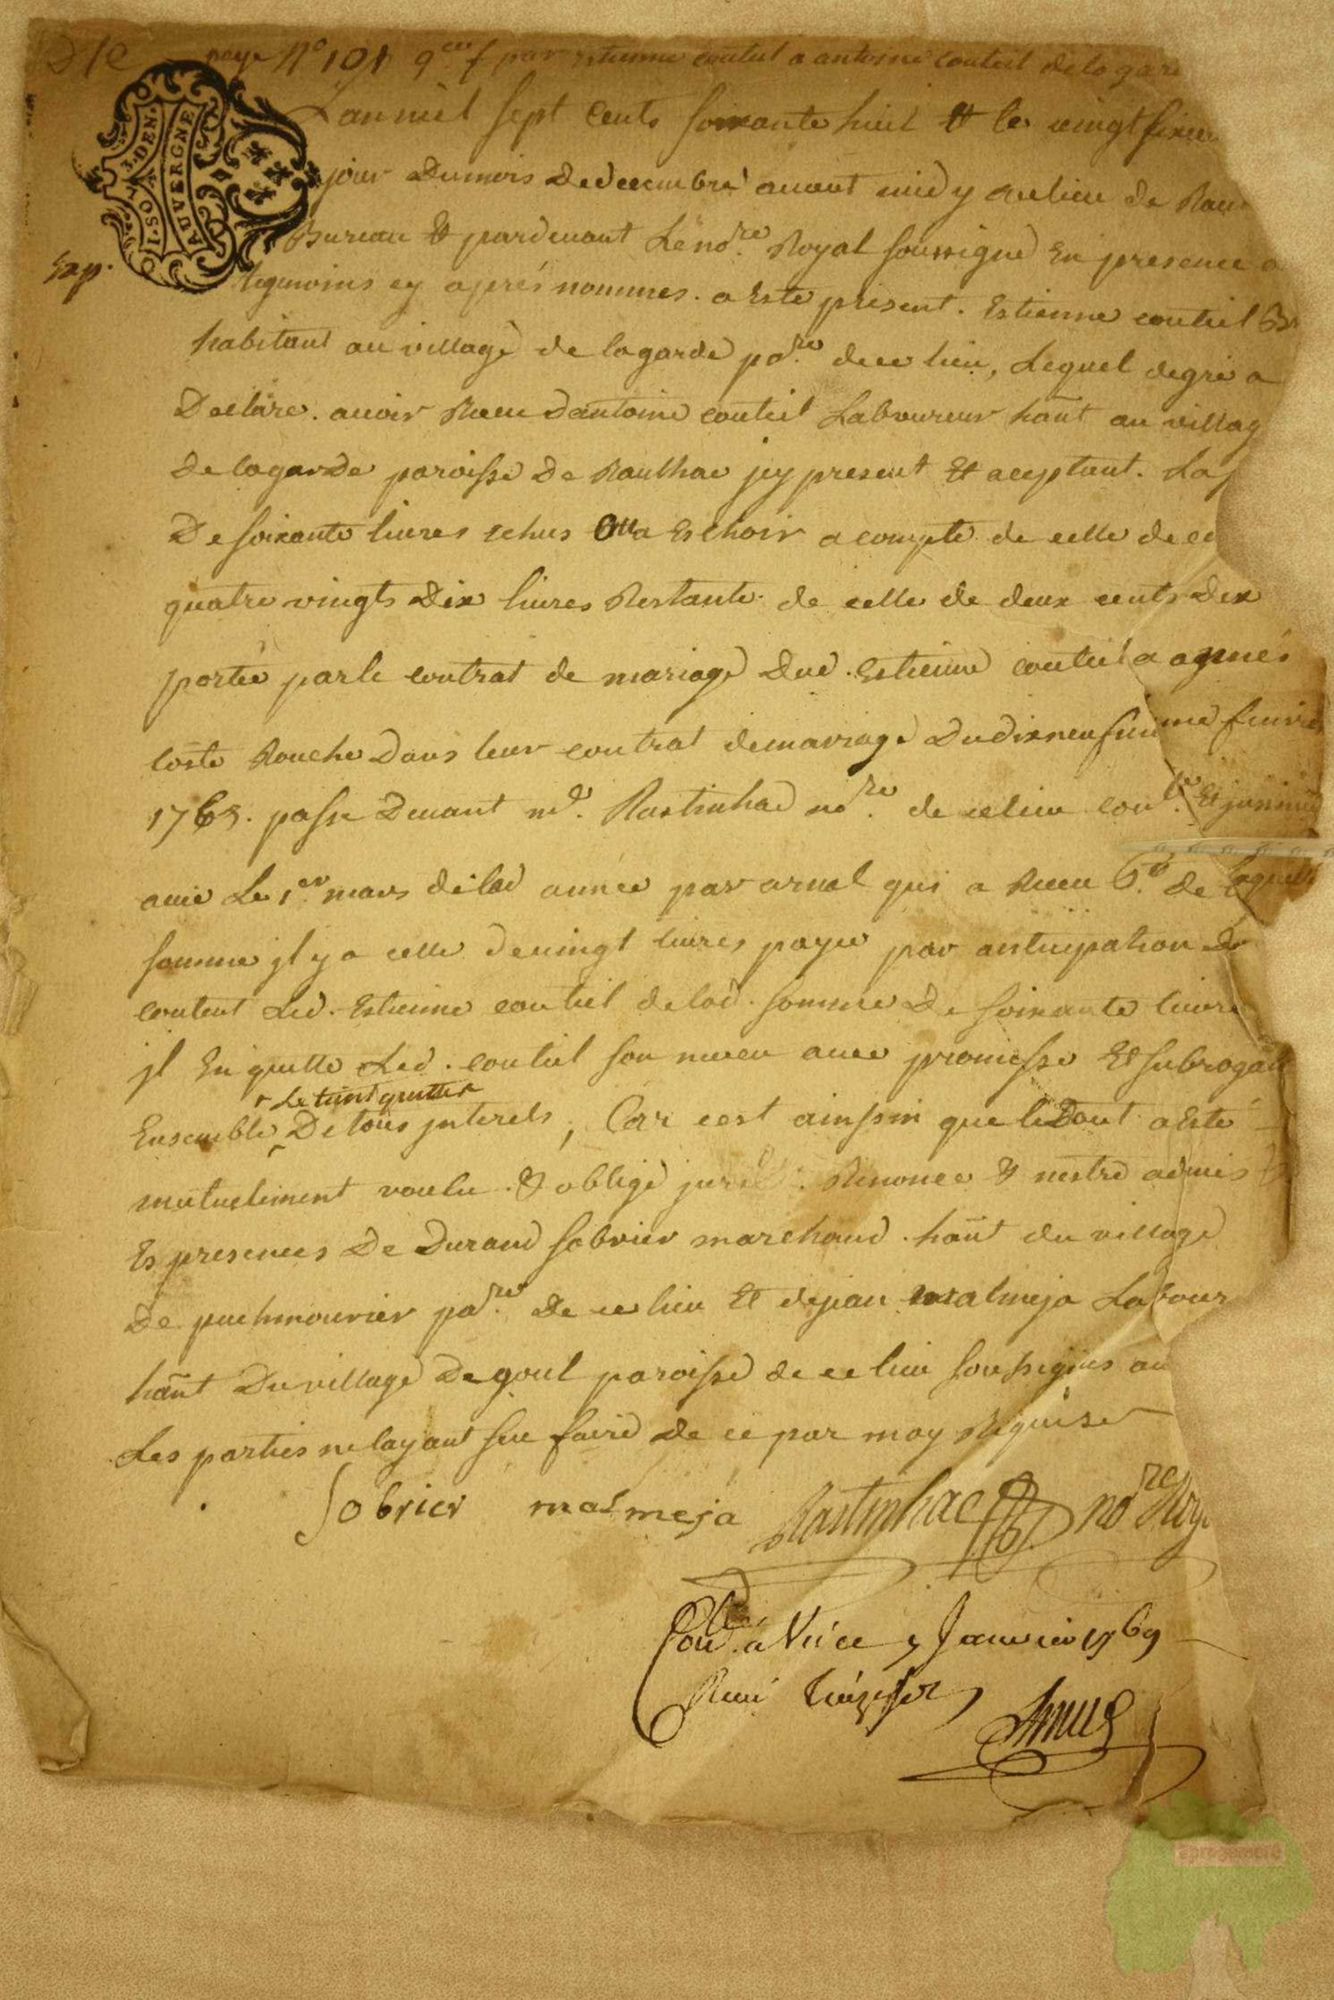 page N° 101 9ce f par estienne couteil a antoine couteil de lagar
Lan mil sept cents soixante huit Et le vingt sixie
jour du mois de decembre avant midy au lieu de Rau
Bureau Et pardevant Le nore Royal soussigné En presence
Exp.
tegmoins cy aprés nommes. a Esté present. Estienne couteil
habitant au village de lagarde pare de ce lieu, Lequel de gré a
Declare. avoir Receu d'antoine couteil Laboureur hant au villag
De lagarde paroisse De Raulhac jcy present Et aceptant. La
De soixante livres echus Ou a Eschoir a compte de celle de ce
quatre vingts dix livres Restante de celle de deux cents dix
portée par le contrat de mariage dud. Estienne couteil a agnés
coste Rouche dans leur contrat de mariage du dixneufuieme
1765. passe devant me. Rastinhac nore. de ce lieu conle. Et
au Le 1er mars de lad année par arnal qui a Receu de laquelle
somme jl y a celle de vingt livres payée par anticipation De
content Led. Estienne couteil de lad. somme De soixante livre
jl En quitte Led. couteil son neveu avec promesse Et subrogan
+ Le tient quitte +
Ensemble De tous jnterets, Car c'est ainssin que le tout a Esté
mutuelement voulu. & obligé jure. Renoncé & mestre admis
Es presences De Durand Sobrier marchand. hant du village
De puechmourier pare. De ce lieu Et de jean malmeja Labour
hant Du village De goul paroisse de ce lieu soussignes au
Les parties ne layant seu faire de ce par moy Requise
Sobrier malmeja Rastinhac nore Roy
Conle. á Vic ce 7 Janvier 1769
Receu treize sols
Amus
I.SOL 4 DEN.
AUVERGNE
aprogemere